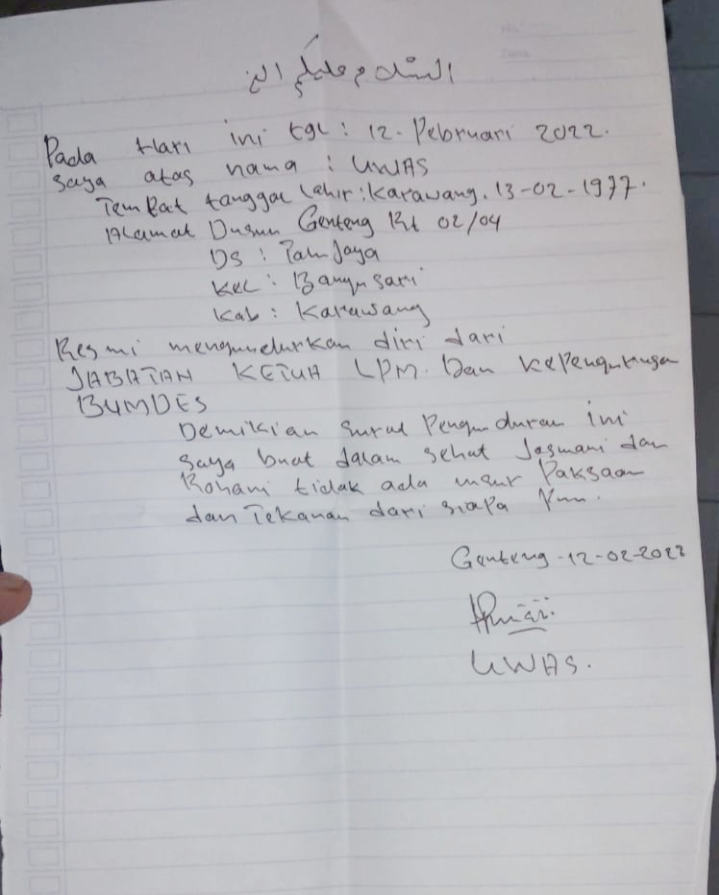 السلام عليكم الخ
Pada Hari ini tgl : 12. Pebruari 2022.
Saya atas nama : UWAS
Tempat tanggal Lahir : Karawang. 13-02-1977.
Alamat Dusun Genteng Rt 02/04
DS : Palu Jaya
Kec : Banyusari
Kab : Karawang
Resmi mengundurkan diri dari
JABATAN KETUA LPM. Dan Kepengurusan
BUMDES
Demikian surat Pengunduran ini
saya buat dalam sehat Jasmani dan
Rohani tidak ada unsur Paksaan
dan Tekanan dari siapa Pun.
Genteng -12-02-2022
UWAS.